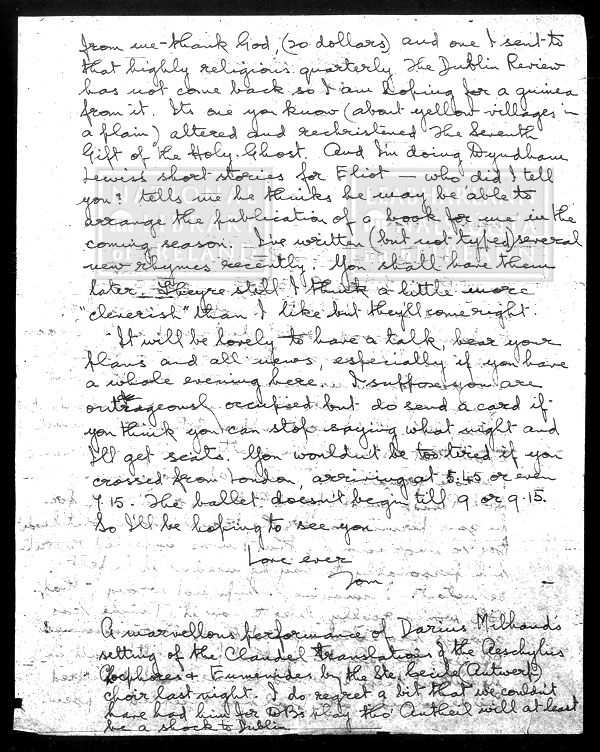 from me - thank God, (20 dollars) and one I sent to
that highly religious quarterly The Dublin Review
has not come back so I am hoping for a guinea
from it. Its one you know (about yellow villages in
a plain) altered and rechristened The Seventh
Gift of the Holy Ghost. And I'm doing Wyndham
Lewis short stories for Eliot — who did I tell
you? tells me he thinks he may be able to
arrange the publication of a book for me in the
coming season. I've written (but not typed) several
new rhymes recently. You shall have them
later. They're still I think a little more
"cleverish" than I like but they'll come right.
It will be lovely to have a talk, hear your
plans and all news, especially if you have
a whole evening here. I suppose you are
outrageously occupied but do send a card if
you think you can stop saying what night and
I'll get seats. You wouldn't be too tired if you
crossed from London, arriving at 5.45 or even
7.15. The ballet doesn't begin till 9 or 9.15.
So I'll be hoping to see you
Love ever
Tom.
A marvellous performance of Darius Milhaud's
setting of the Claudel translations of the Aeschylus
Choephores & Eumenides by the Ste. Cecile (Antwerp)
choir last night. I do regret a bit that we couldn't
have had him for WB's play tho' Antheil will at least
be a shock to Dublin
NATIONAL
LIBRARY
OF IRELAND
LEABHARLANN
NÁISIÚNTA
NA hÉIREANN